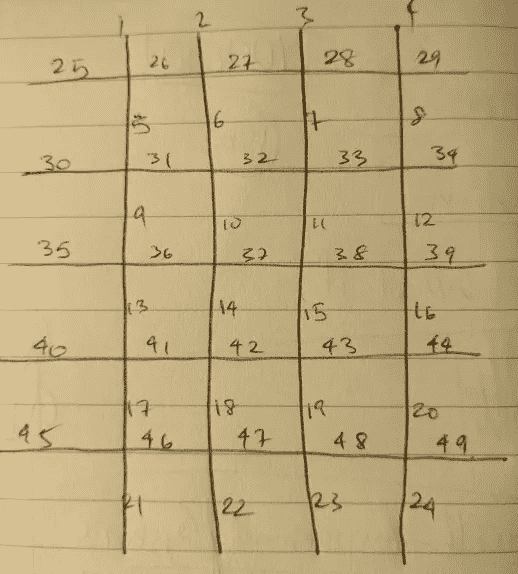 1 2 3 4
25 26 27 28 29
5 6 7 8
30 31 32 33 34
9 10 11 12
35 36 37 38 39
13 14 15 16
40 41 42 43 44
17 18 19 20
45 46 47 48 49
21 22 23 24